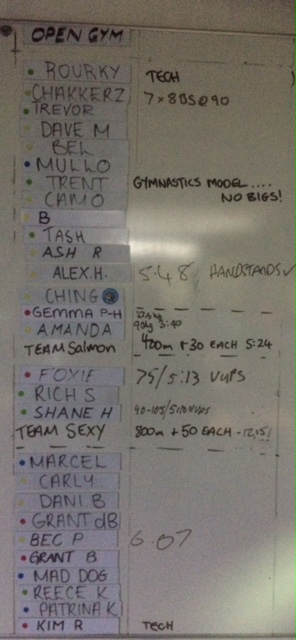 OPEN GYM
ROURKY TECH
CHAKKERZ 7x8BS@90
TREVOR
DAVE M
BEL
MULLO
TRENT GYMNASTICS MODEL....
CAMO NO BIGS!
B
TASH
ASH R
ALEX.H. 5.48 HANDSTANDS✓
CHING
GEMMA P-H
AMANDA
TEAM Salmon 400m + 30 EACH 5:24
FOXIE 75/5:13 VUPS
RICH S
SHANE H
TEAM SEXY 800m + 50 EACH
MARCEL
CARLY
DANI B
GRANT dB
BEC P 6.07
GRANT B
MAD DOG
REECE K
PATRINA K
KIM R TECH